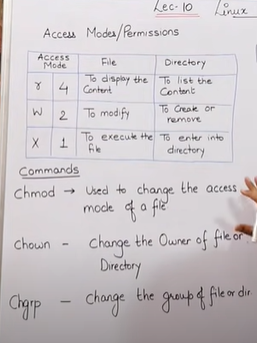 Lec-10 Linux
Access Modes/Permissions
Access Mode File Directory
r 4 To display the Content To list the Content
W 2 To modify To Create or remove
X 1 To execute the file To enter into directory
Commands
Chmod → Used to change the access
mode of a file
Chown - Change the Owner of file or
Directory
Chgrp - Change the group of file or dir